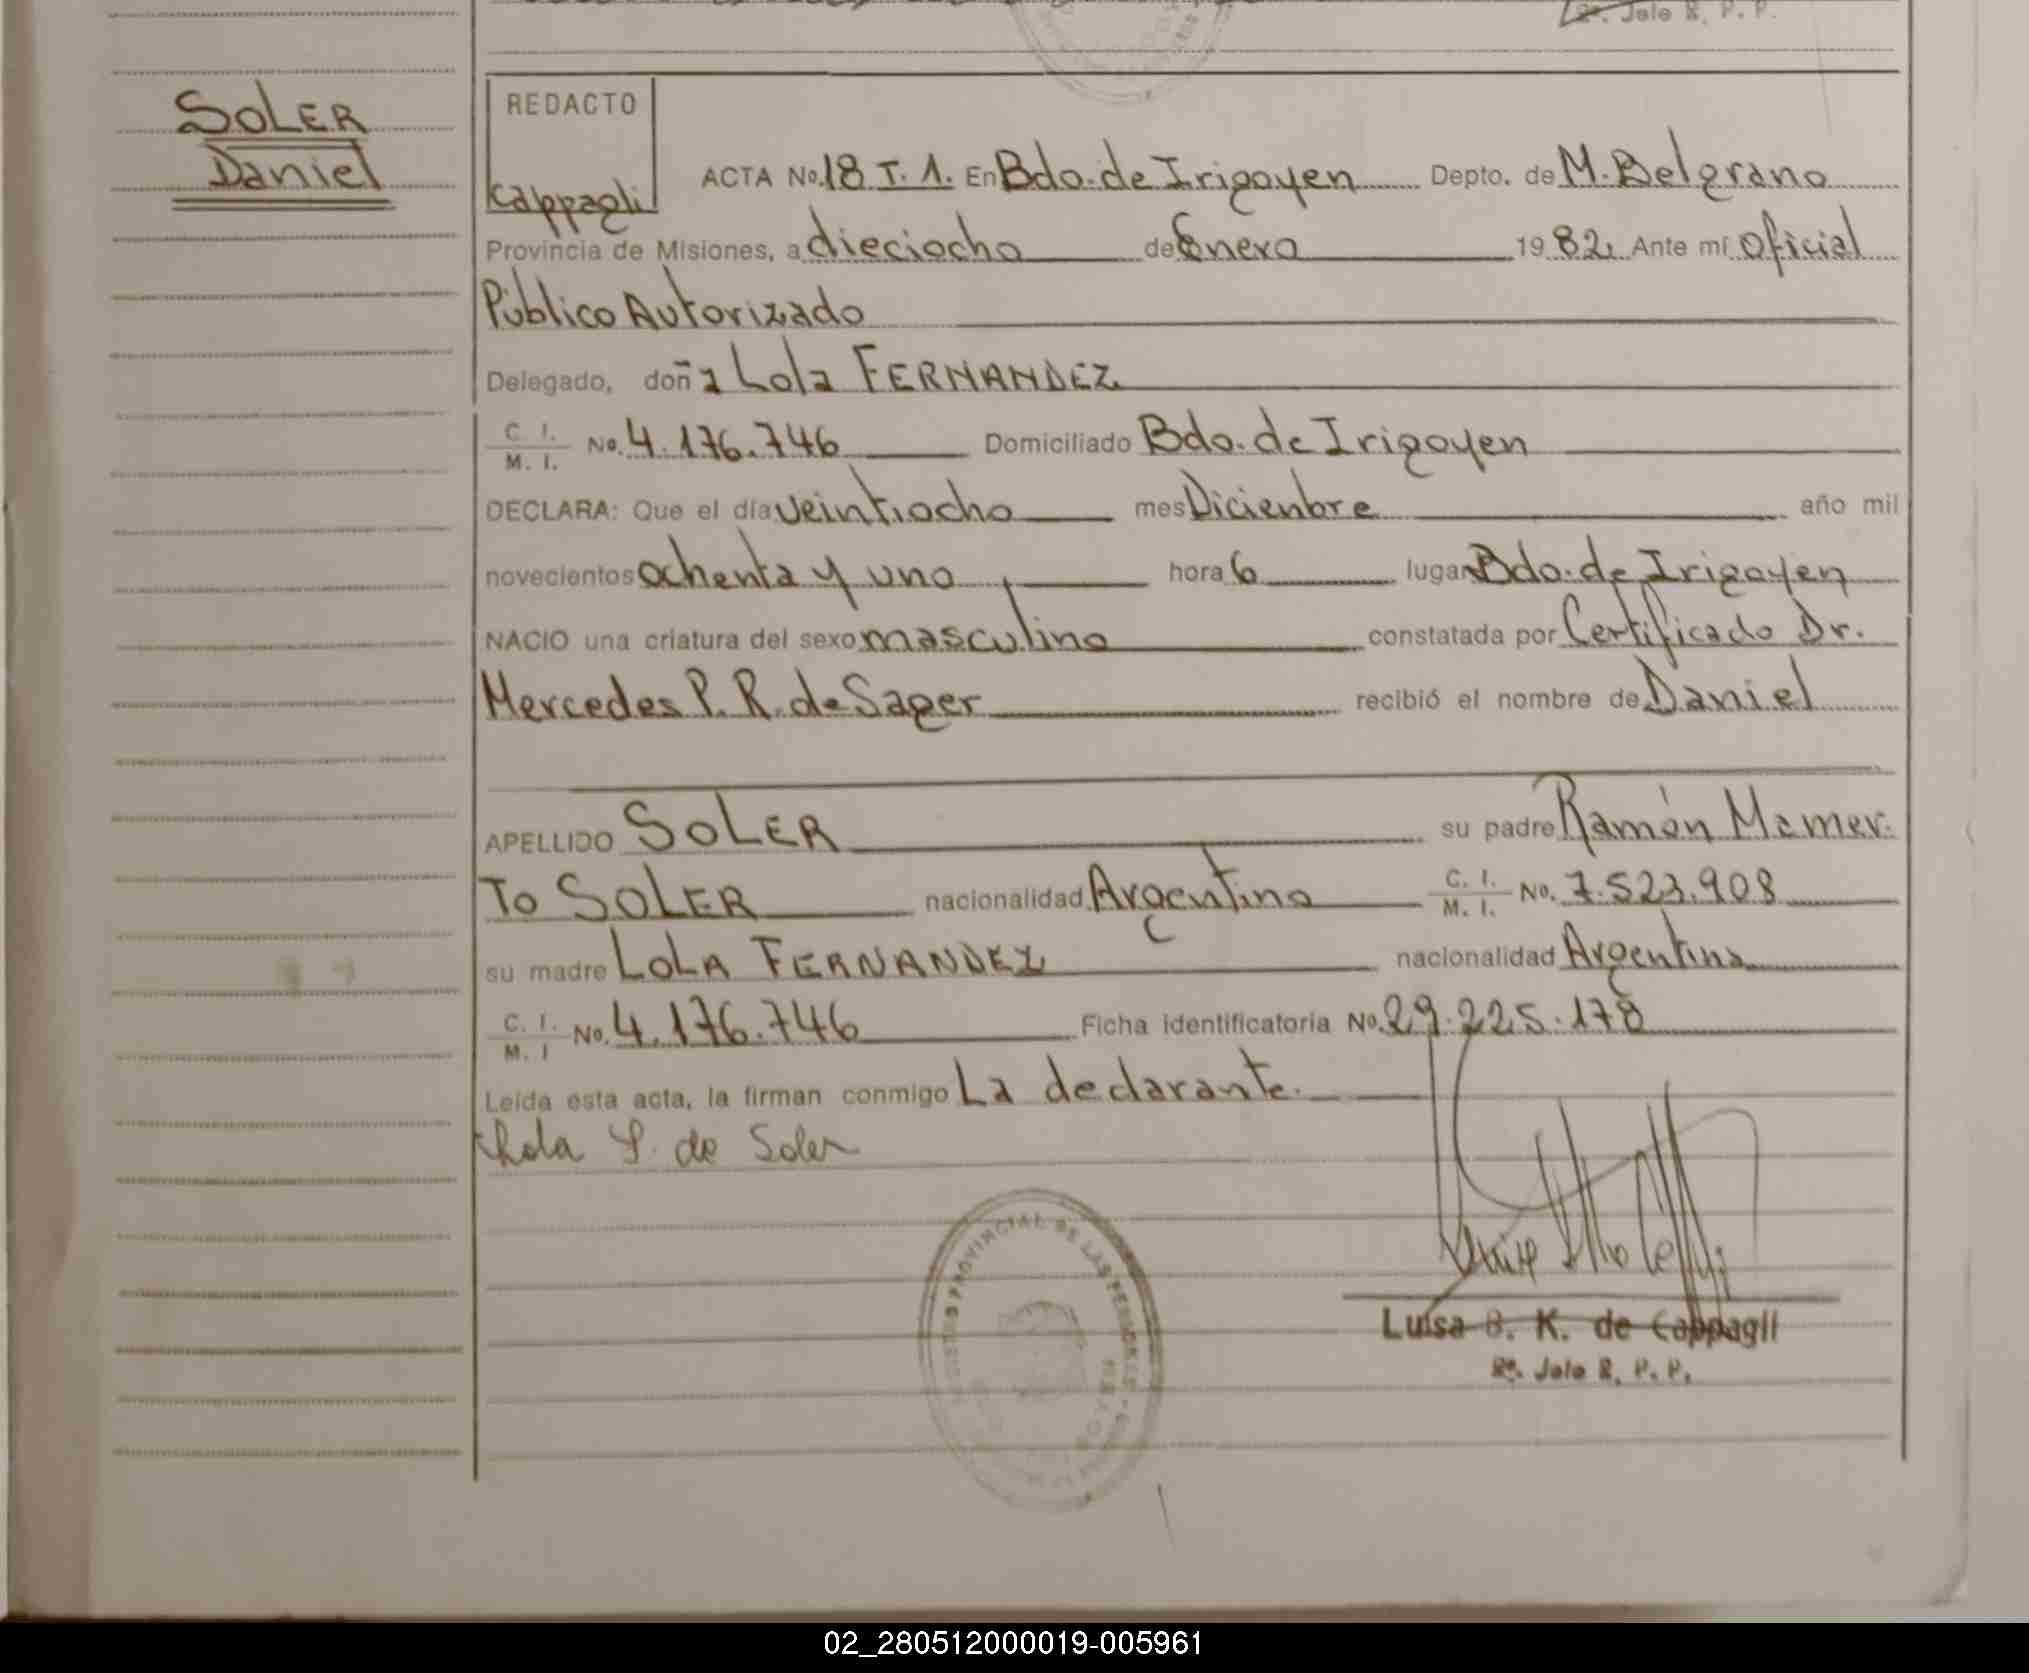 Jefe R. P. P.
SOLER
Daniel
REDACTO
Cappagli
ACTA No. 18 T. 1. En Bdo. de Irigoyen Depto. de M. Belgrano
Provincia de Misiones, a dieciocho de Enero 1982. Ante mí Oficial
Público Autorizado
Delegado, doña Lola FERNANDEZ
C. I. / M. I. No. 4.176.746 Domiciliado Bdo. de Irigoyen
DECLARA: Que el día veintiocho mes Dicienbre año mil
novecientos ochenta y uno, hora 6 lugar Bdo. de Irigoyen
NACIO una criatura del sexo masculino constatada por Certificado Dr.
Mercedes P. R. de Sager recibió el nombre de Daniel
APELLIDO SOLER su padre Ramón Mamer
To SOLER nacionalidad Argentino C. I. / M. I. No. 7.523.908
su madre LOLA FERNANDEZ nacionalidad Argentina
C. I. / M. I No. 4.176.746 Ficha identificatoria No. 29.225.178
Leída esta acta, la firman conmigo La declarante.
Lola F. de Soler
PROVINCIAL DE LAS PERSONAS
Luisa B. K. de Cappagli
Jefe R. P. P.
02_280512000019-005961